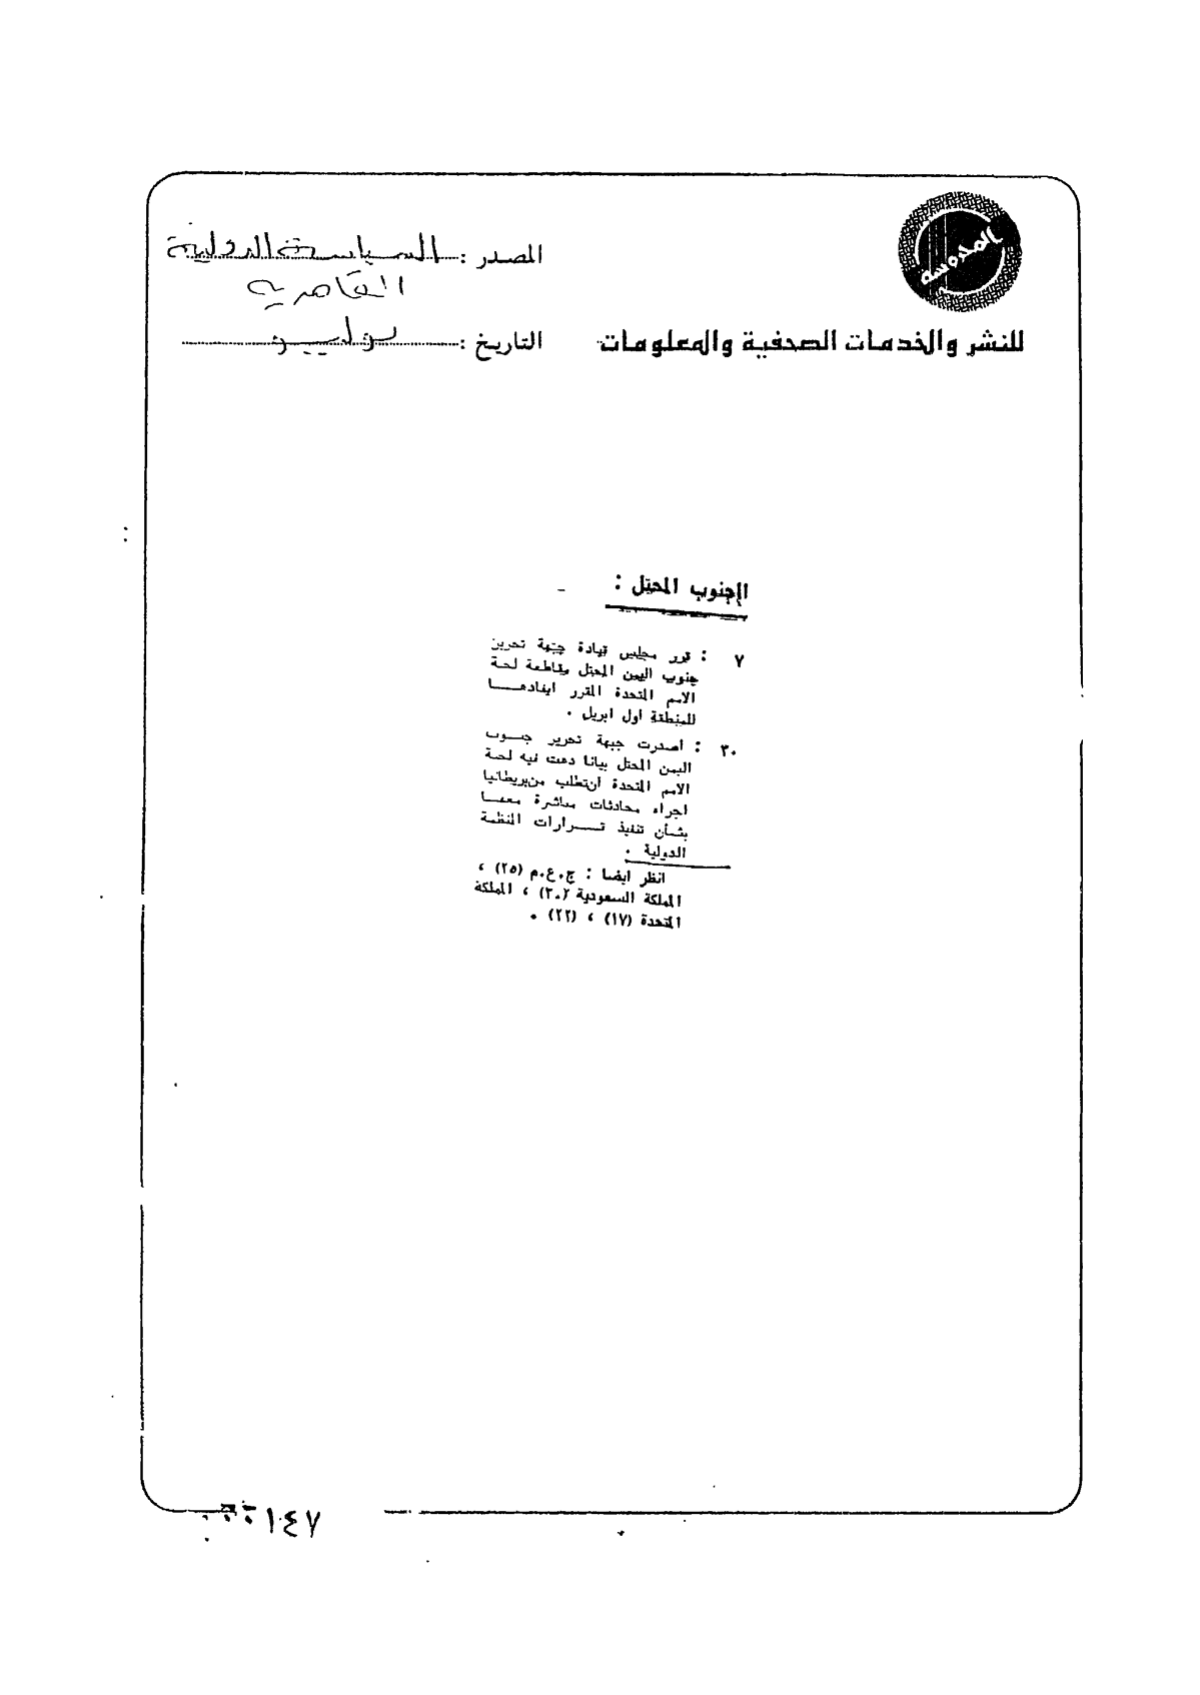 المحروسة
للنشر والخدمات الصحفية والمعلومات
المصدر : السياسة الدولية
القاهرية
التاريخ : يوليو
الجنوب المحتل :
٧ : قرر مجلس قيادة جبهة تحرير
جنوب اليمن المحتل مقاطعة لجنة
الامم المتحدة المقرر ايفادهـــا
للمنطقة اول ابريل .
٣٠ : اصدرت جبهة تحرير جنــوب
اليمن المحتل بيانا دعت فيه لجنة
الامم المتحدة ان تطلب من بريطانيا
اجراء محادثات مباشرة معهــا
بشأن تنفيذ قــرارات المنظمة
الدولية .
انظر ايضا : ج.ع.م (٢٥) ،
المملكة السعودية (٣٠) ، المملكة
المتحدة (١٧) ، (٢٢) .
١٤٧